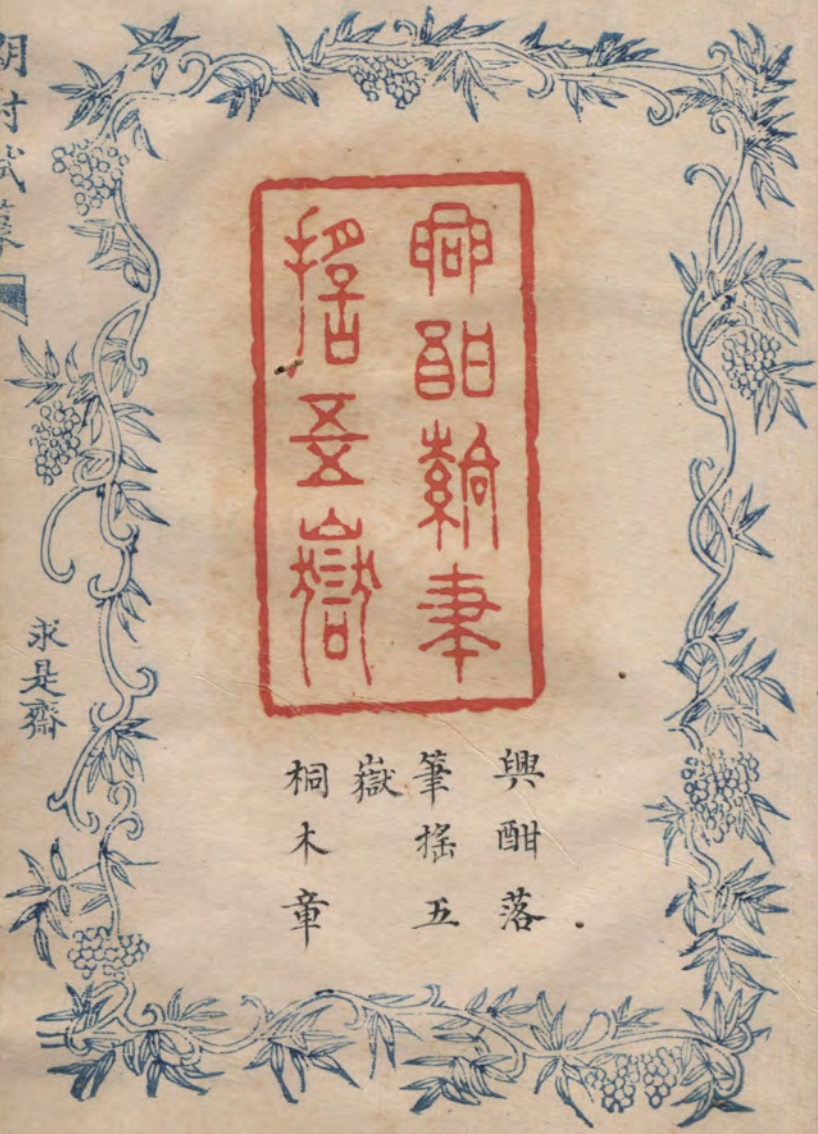 興酣落筆
搖五嶽
興酣落
筆搖五
嶽
桐木章
求是齋